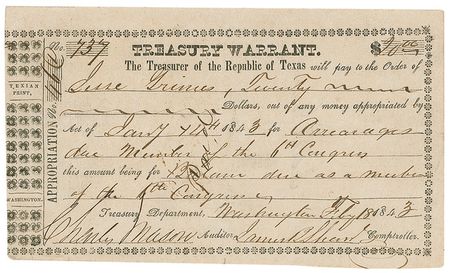 No. 737 TREASURY WARRANT. $20.00
The Treasurer of the Republic of Texas will pay to the Order of
Jesse Grimes, Twenty
Dollars, out of any money appropriated by
Act of Jany 1843 for Arrearages
due Members of the 6th Congress
this amount being for due as a member
of the 6th Congress
Treasury Department, Washington 1843
Charles Mason Auditor Comptroller.
APPROPRIATION No.
TEXIAN PRINT,
WASHINGTON.